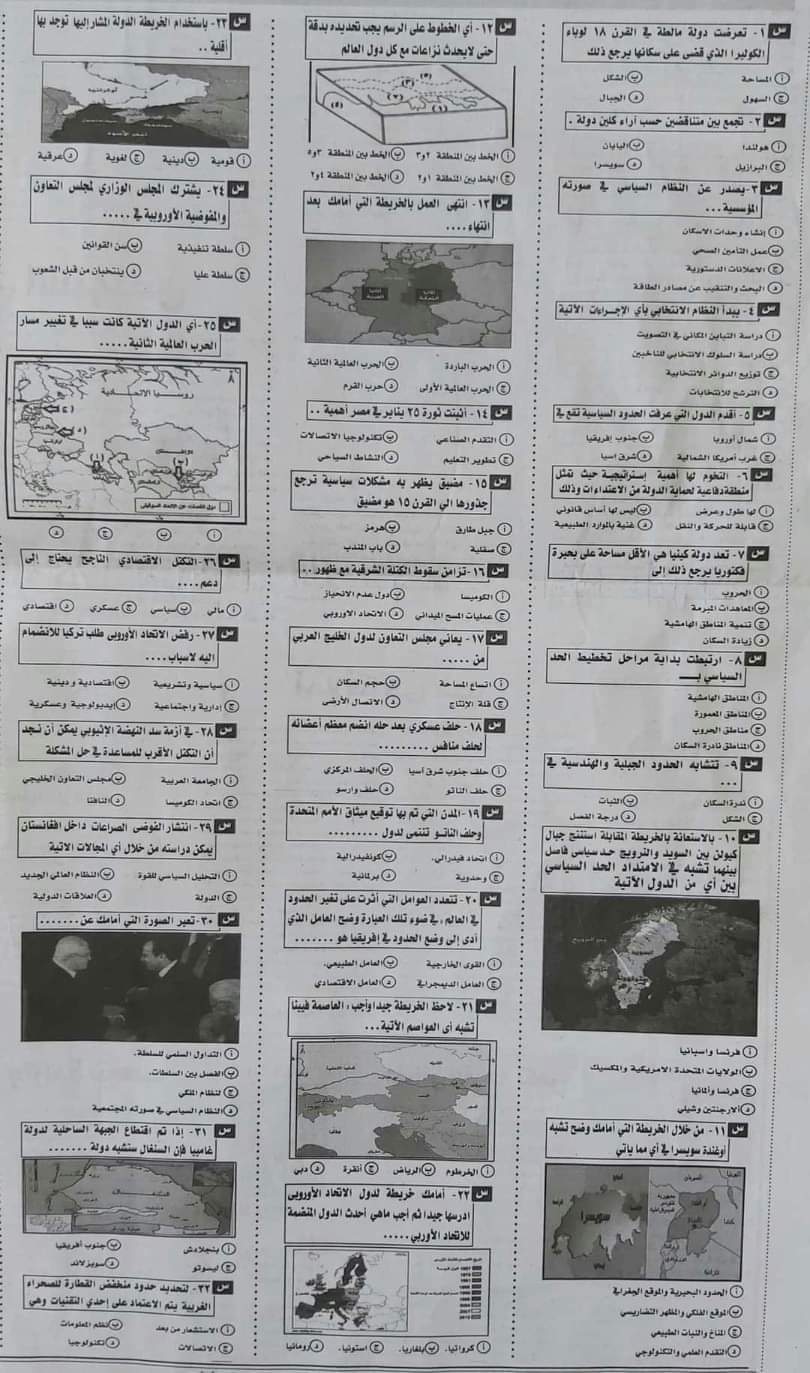 س ١- تعرضت دولة مالطة في القرن ١٨ لوباء
الكوليرا الذي قضى على سكانها يرجع ذلك
أ المساحة ب الشكل
ج السهول د الجبال
س ٢- تجمع بين متناقضين حسب آراء كلين دولة .
أ هولندا ب اليابان
ج البرازيل د سويسرا
س ٣- يصدر عن النظام السياسي في صورته
المؤسسية...
أ إنشاء وحدات الاسكان
ب عمل التأمين الصحي
ج الاعلانات الدستورية
د البحث والتنقيب عن مصادر الطاقة
س ٤- يبدأ النظام الانتخابي بأي الإجراءات الآتية
أ دراسة التباين المكاني في التصويت
ب دراسة السلوك الانتخابي للناخبين
ج توزيع الدوائر الانتخابية
د الترشح للانتخابات
س ٥- أقدم الدول التي عرفت الحدود السياسية تقع في
أ شمال أوروبا ب جنوب إفريقيا
ج غرب أمريكا الشمالية د شرق اسيا
س ٦- التخوم لها أهمية إستراتيجية حيث تمثل
منطقة دفاعية لحماية الدولة من الاعتداءات وذلك
أ لها طول وعرض ب ليس لها أساس قانوني
ج قابلة للحركة والنقل د غنية بالموارد الطبيعية
س ٧- تعد دولة كينيا هي الأقل مساحة على بحيرة
فكتوريا يرجع ذلك إلى
أ الحروب
ب المعاهدات المبرمة
ج تنمية المناطق الهامشية
د زيادة السكان
س ٨- ارتبطت بداية مراحل تخطيط الحد
السياسي بـ
أ المناطق الهامشية
ب المناطق المعمورة
ج مناطق الحروب
د المناطق نادرة السكان
س ٩- تتشابه الحدود الجبلية والهندسية في
...
أ ندرة السكان ب الثبات
ج الشكل د درجة الفصل
س ١٠- بالاستعانة بالخريطة المقابلة استنتج جبال
كيولن بين السويد والنرويج حد سياسي فاصل
بينهما تشبه في الامتداد الحد السياسي
بين أي من الدول الآتية
أ فرنسا واسبانيا
ب الولايات المتحدة الامريكية والمكسيك
ج فرنسا وألمانيا
د ألارجنتين وشيلي
س ١١- من خلال الخريطة التي أمامك وضح تشبه
أوغندة سويسرا في أي مما يأتي
سويسرا
أ الحدود البحيرية والموقع الجغرافي
ب الموقع الفلكي والمظهر التضاريسي
ج المناخ والنبات الطبيعي
د التقدم العلمي والتكنولوجي
س ١٢- أي الخطوط على الرسم يجب تحديده بدقة
حتى لايحدث نزاعات مع كل دول العالم
أ الخط بين المنطقة ٢و٣ ب الخط بين المنطقة ٣و٥
ج الخط بين المنطقة ١و٢ د الخط بين المنطقة ٤و٢
س ١٣- انتهى العمل بالخريطة التي أمامك بعد
انتهاء ....
أ الحرب الباردة ب الحرب العالمية الثانية
ج الحرب العالمية الأولى د حرب القرم
س ١٤- أثبتت ثورة ٢٥ يناير في مصر أهمية ..
أ التقدم الصناعي ب تكنولوجيا الاتصالات
ج تطوير التعليم د النشاط السياحي
س ١٥- مضيق يظهر به مشكلات سياسية ترجع
جذورها الي القرن ١٥ هو مضيق
أ جبل طارق ب هرمز
ج صقلية د باب المندب
س ١٦- تزامن سقوط الكتلة الشرقية مع ظهور ..
أ الكوميسا ب دول عدم الانحياز
ج عمليات المسح الميداني د الاتحاد الاوروبي
س ١٧- يعاني مجلس التعاون لدول الخليج العربي
من .....
أ اتساع المساحة ب حجم السكان
ج قلة الإنتاج د الاتصال الأرضى
س ١٨- حلف عسكري بعد حله انضم معظم أعضائه
لحلف منافس .........
أ حلف جنوب شرق آسيا ب الحلف المركزي
ج حلف الناتو د حلف وارسو
س ١٩- المدن التي تم بها توقيع ميثاق الأمم المتحدة
وحلف الناتو تنتمى لدول .........
أ اتحاد فيدرالي. ب كونفيدرالية
ج وحدوية د برلمانية
س ٢٠- تتعدد العوامل التي أثرت على تغير الحدود
في العالم، في ضوء تلك العبارة وضح العامل الذي
أدى إلى وضع الحدود في إفريقيا هو .......
أ القوى الخارجية ب العامل الطبيعي.
ج العامل الديمجرافي د العامل الاقتصادي
س ٢١- لاحظ الخريطة جيدا وأجب ، العاصمة فيينا
تشبه أى العواصم الأتية...
أ الخرطوم ب الرياض ج أنقرة د دبي
س ٢٢- أمامك خريطة لدول الاتحاد الأوروبي
ادرسها جيدا ثم أجب ماهي أحدث الدول المنضمة
للاتحاد الأوربي.....
أ كرواتيا. ب بلغاريا. ج استونيا. د رومانيا
س ٢٣- باستخدام الخريطة الدولة المشار إليها توجد بها
أقلية ..
أ قومية ب دينية ج لغوية د عرقية
س ٢٤- يشترك المجلس الوزاري لمجلس التعاون
والمفوضية الأوروبية في .....
أ سلطة تنفيذية ب سن القوانين
ج سلطة عليا د ينتخبان من قبل الشعوب
س ٢٥- أي الدول الآتية كانت سببا في تغيير مسار
الحرب العالمية الثانية.....
روسيا الاتحادية
أ ب ج د
س ٢٦- التكتل الاقتصادي الناجح يحتاج إلى
دعم....
أ مالي ب سياسي ج عسكري د اقتصادي
س ٢٧- رفض الاتحاد الأوروبي طلب تركيا للانضمام
اليه لاسباب....
أ سياسية وتشريعية ب اقتصادية و دينية
ج إدارية واجتماعية د إيديولوجية وعسكرية
س ٢٨- في أزمة سد النهضة الإثيوبي يمكن أن نجد
أن التكتل الأقرب للمساعدة في حل المشكلة
أ الجامعة العربية ب مجلس التعاون الخليجي
ج اتحاد الكوميسا د النافتا
س ٢٩- انتشار الفوضى الصراعات داخل افغانستان
يمكن دراسته من خلال أي المجالات الاتية
أ التحليل السياسي للقوة ب النظام العالمي الجديد
ج الدولة د العلاقات الدولية
س ٣٠- تعبر الصورة التي أمامك عن .......
أ التداول السلمي للسلطة.
ب الفصل بين السلطات.
ج لنظام الملكي
د النظام السياسي في صورته المجتمعية
س ٣١- إذا تم اقتطاع الجبهة الساحلية لدولة
غامبيا فإن السنغال ستشبه دولة .......
أ بنجلادش ب جنوب أفريقيا
ج ليسوتو د سويزلاند
س ٣٢- لتحديد حدود منخفض القطارة للصحراء
الغربية يتم الاعتماد على إحدي التقنيات وهي
أ الاستشعار من بعد ب نظم المعلومات
ج الاتصالات د تكنولوجيا